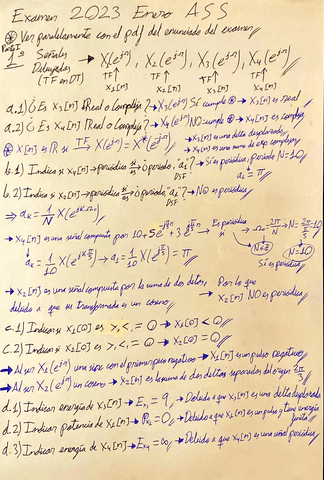 Examen 2023 Enero ASS
⊛ Ver paralelamente con el pdf del enunciado del examen
Parte I
1º Señales → X₁(e^jΩ), X₂(e^jΩ), X₃(e^jΩ), X₄(e^jΩ)
Dibujadas TF↑ TF↑ TF↑ TF↑
(TF en DT) x₁[n] x₂[n] x₃[n] x₄[n]
a.1) ¿Es x₃[n] ¿Real o Compleja? → X₃(e^jΩ) SÍ cumple ⊛ → x₃[n] es real
a.2) ¿Es x₄[n] ¿Real o Compleja? → X₄(e^jΩ) NO cumple ⊛ → x₄[n] es compleja
⊛ x[n] es ℝ si TF X(e^jΩ) = X*(e^-jΩ) → x₃[n] es una delta desplazada
→ x₄[n] es una suma de exp complejas
b.1) Indica si x₄[n] → periódica → si es periodo, a₁? DSF → Sí es periódica, periodo N=10
a₁ = π
b.2) Indica si x₂[n] → periódica → si es periodo, a₁? DSF → NO es periódica
⇒ aₖ = 1/N X(e^jkΩ₀)
→ x₄[n] es una señal compuesta por → Es periódica si → Ω₀ = 2π/N → N =
N∈ℤ N=10
Sí es periódica
→ x₂[n] es una señal compuesta por la suma de dos deltas, Por lo que
debido a que su transformada es un coseno x₂[n] NO es periódica
c.1) Indicar si x₁[0] es >,<,= 0 → x₁[0] < 0
c.2) Indicar si x₂[0] es >,<,= 0 → x₂[0] = 0
→ Al ser X₁(e^jΩ) una sinc con el primer pico negativo → x₁[n] es un pulso negativo
→ Al ser X₂(e^jΩ) un coseno → x₂[n] es la suma de dos deltas separadas del origen
d.1) Indicar energía de x₃[n] → Eₓ₃ = 9, → Debido a que x₃[n] es una delta desplazada
d.2) Indicar potencia de x₁[n] → Pₓ₁ = 0, → Debido a que x₁[n] es un pulso y tiene energía finita
d.3) Indicar energía de x₄[n] → Eₓ₄ = ∞ → Debido a que x₄[n] es una señal periódica